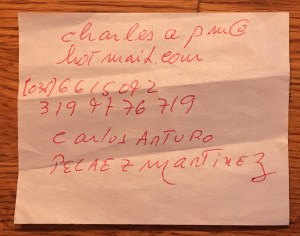 charles a pm@
hotmail.com
(032)6615092
319 4776719
Carlos ARTURO
PELAEZ MARTINEZ